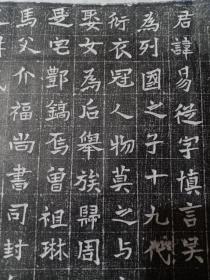 君諱易從字慎言吴
為列國之子十九代
衍衣冠人物莫之与
娶女為后舉族歸周
是宅酆鎬焉曾祖琳
馬父介福尚書司封